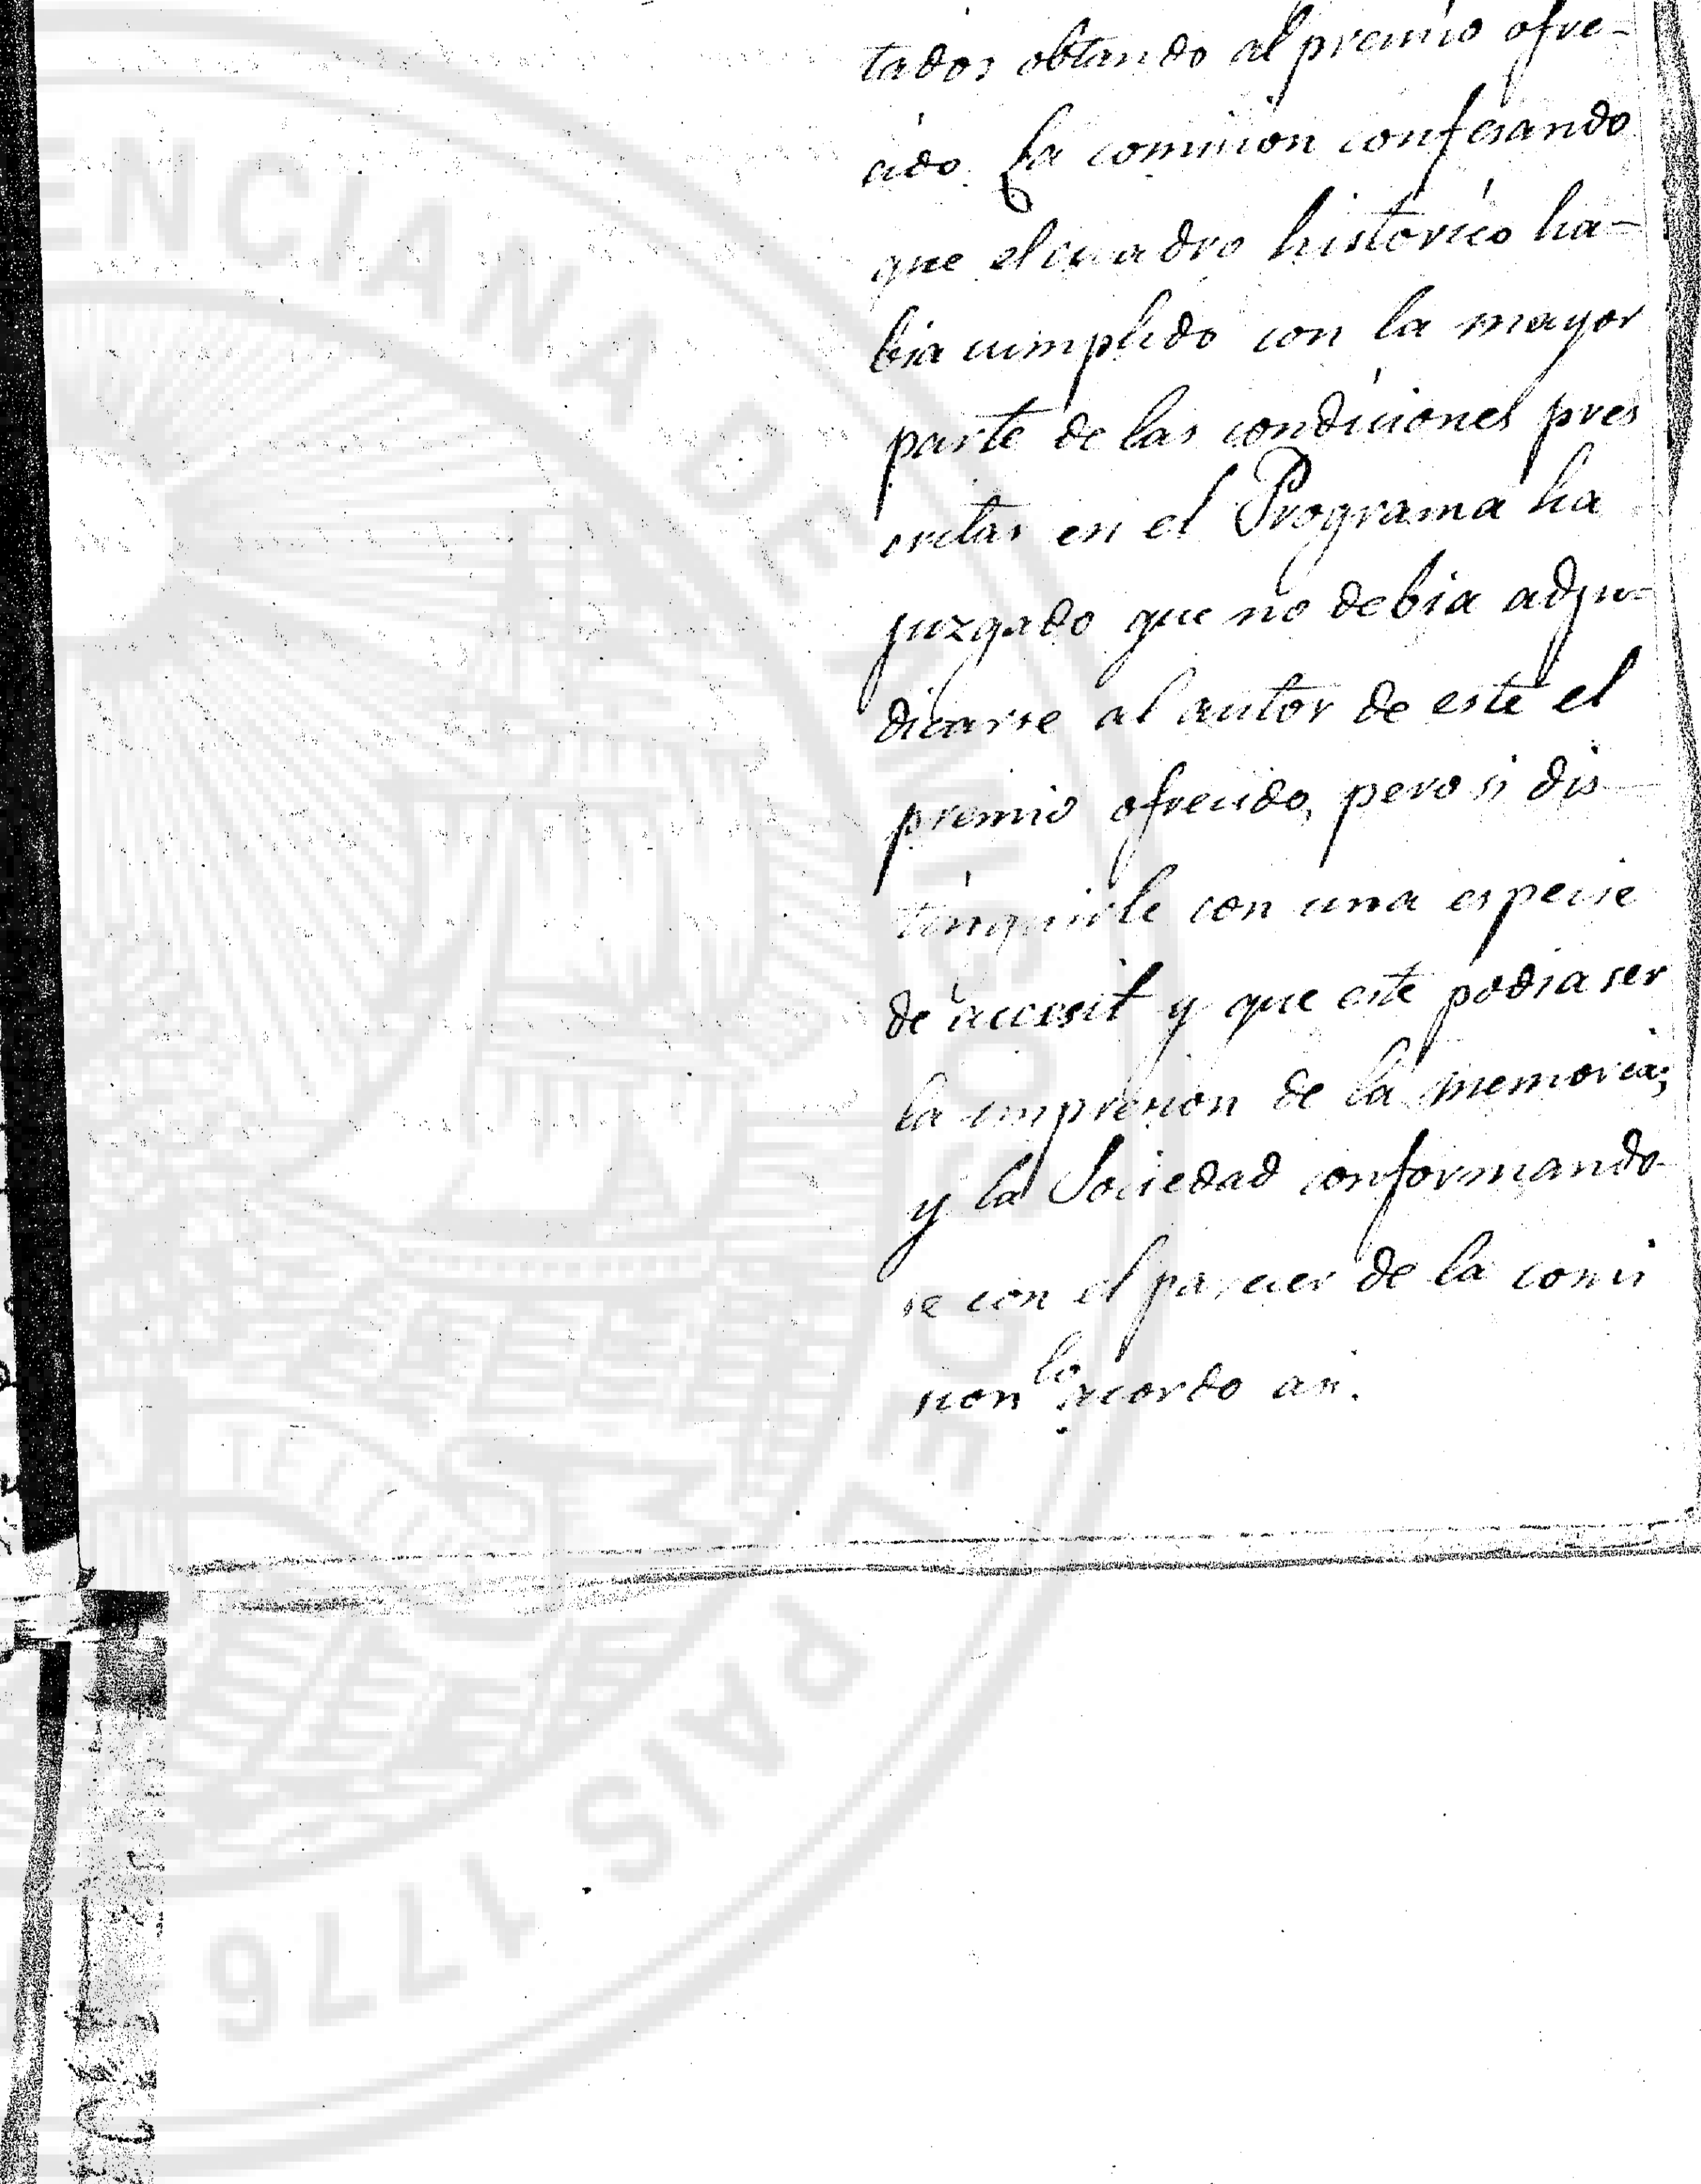 tados obtando al premio ofre-
cido. La comision confesando
que el cuadro historico ha-
bia cumplido con la mayor
parte de las condiciones pres
critas en el Programa ha
juzgado que no debia adju-
dicarse al autor de este el
premio ofrecido, pero si dis-
tinguirle con una especie
de accesit y que este podia ser
la impresion de la memoria;
y la Sociedad conformando-
se con el parecer de la comi
sion lo acordo asi.
ENCIANA DE AMIGOS DEL PAIS 1776